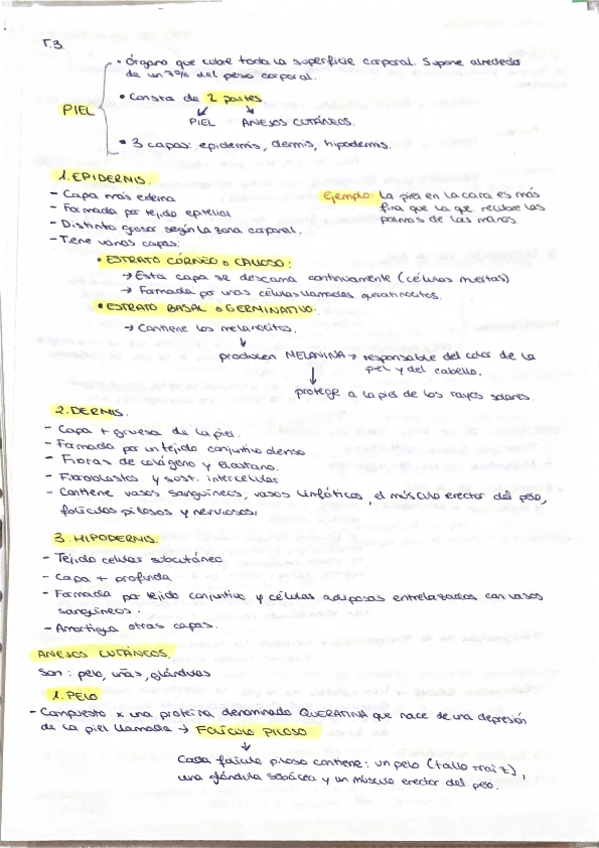 T.3.
• Órgano que cubre toda la superficie corporal. Supone alrededor
de un 7% del peso corporal.
• Consta de 2 partes.
PIEL
PIEL ANEJOS CUTÁNEOS.
• 3 capas: epidermis, dermis, hipodermis.
1. EPIDERMIS.
- Capa más externa
- Formada por tejido epitelial
- Distinto grosor según la zona corporal.
- Tiene varias capas:
Ejemplo: La piel en la cara es más
fina que la que recubre las
palmas de las manos.
• ESTRATO CÓRNEO o CALLOSO:
→ Esta capa se descama continuamente (células muertas)
→ Formada por unas células llamadas queratinocitos.
• ESTRATO BASAL o GERMINATIVO:
→ Contiene los melanocitos.
producen MELANINA → responsable del color de la
piel y del cabello.
protege a la piel de los rayos solares.
2. DERMIS.
- Capa + gruesa de la piel.
- Formada por un tejido conjuntivo denso
- Fibras de colágeno y elastano.
- Fibroblastos y sust. intercelular
- Contiene vasos sanguíneos, vasos linfáticos, el músculo erector del pelo,
folículos pilosos y nerviosos.
3. HIPODERMIS.
- Tejido celular subcutáneo
- Capa + profunda
- Formada por tejido conjuntivo y células adiposas entrelazadas con vasos
sanguíneos.
- Amortigua otras capas.
ANEJOS CUTÁNEOS.
Son: pelo, uñas, glándulas
1. PELO
- Compuesto x una proteína denominada QUERATINA que nace de una depresión
de la piel llamada → FOLÍCULO PILOSO
Cada folículo piloso contiene: un pelo (tallo y raíz),
una glándula sebácea y un músculo erector del pelo.